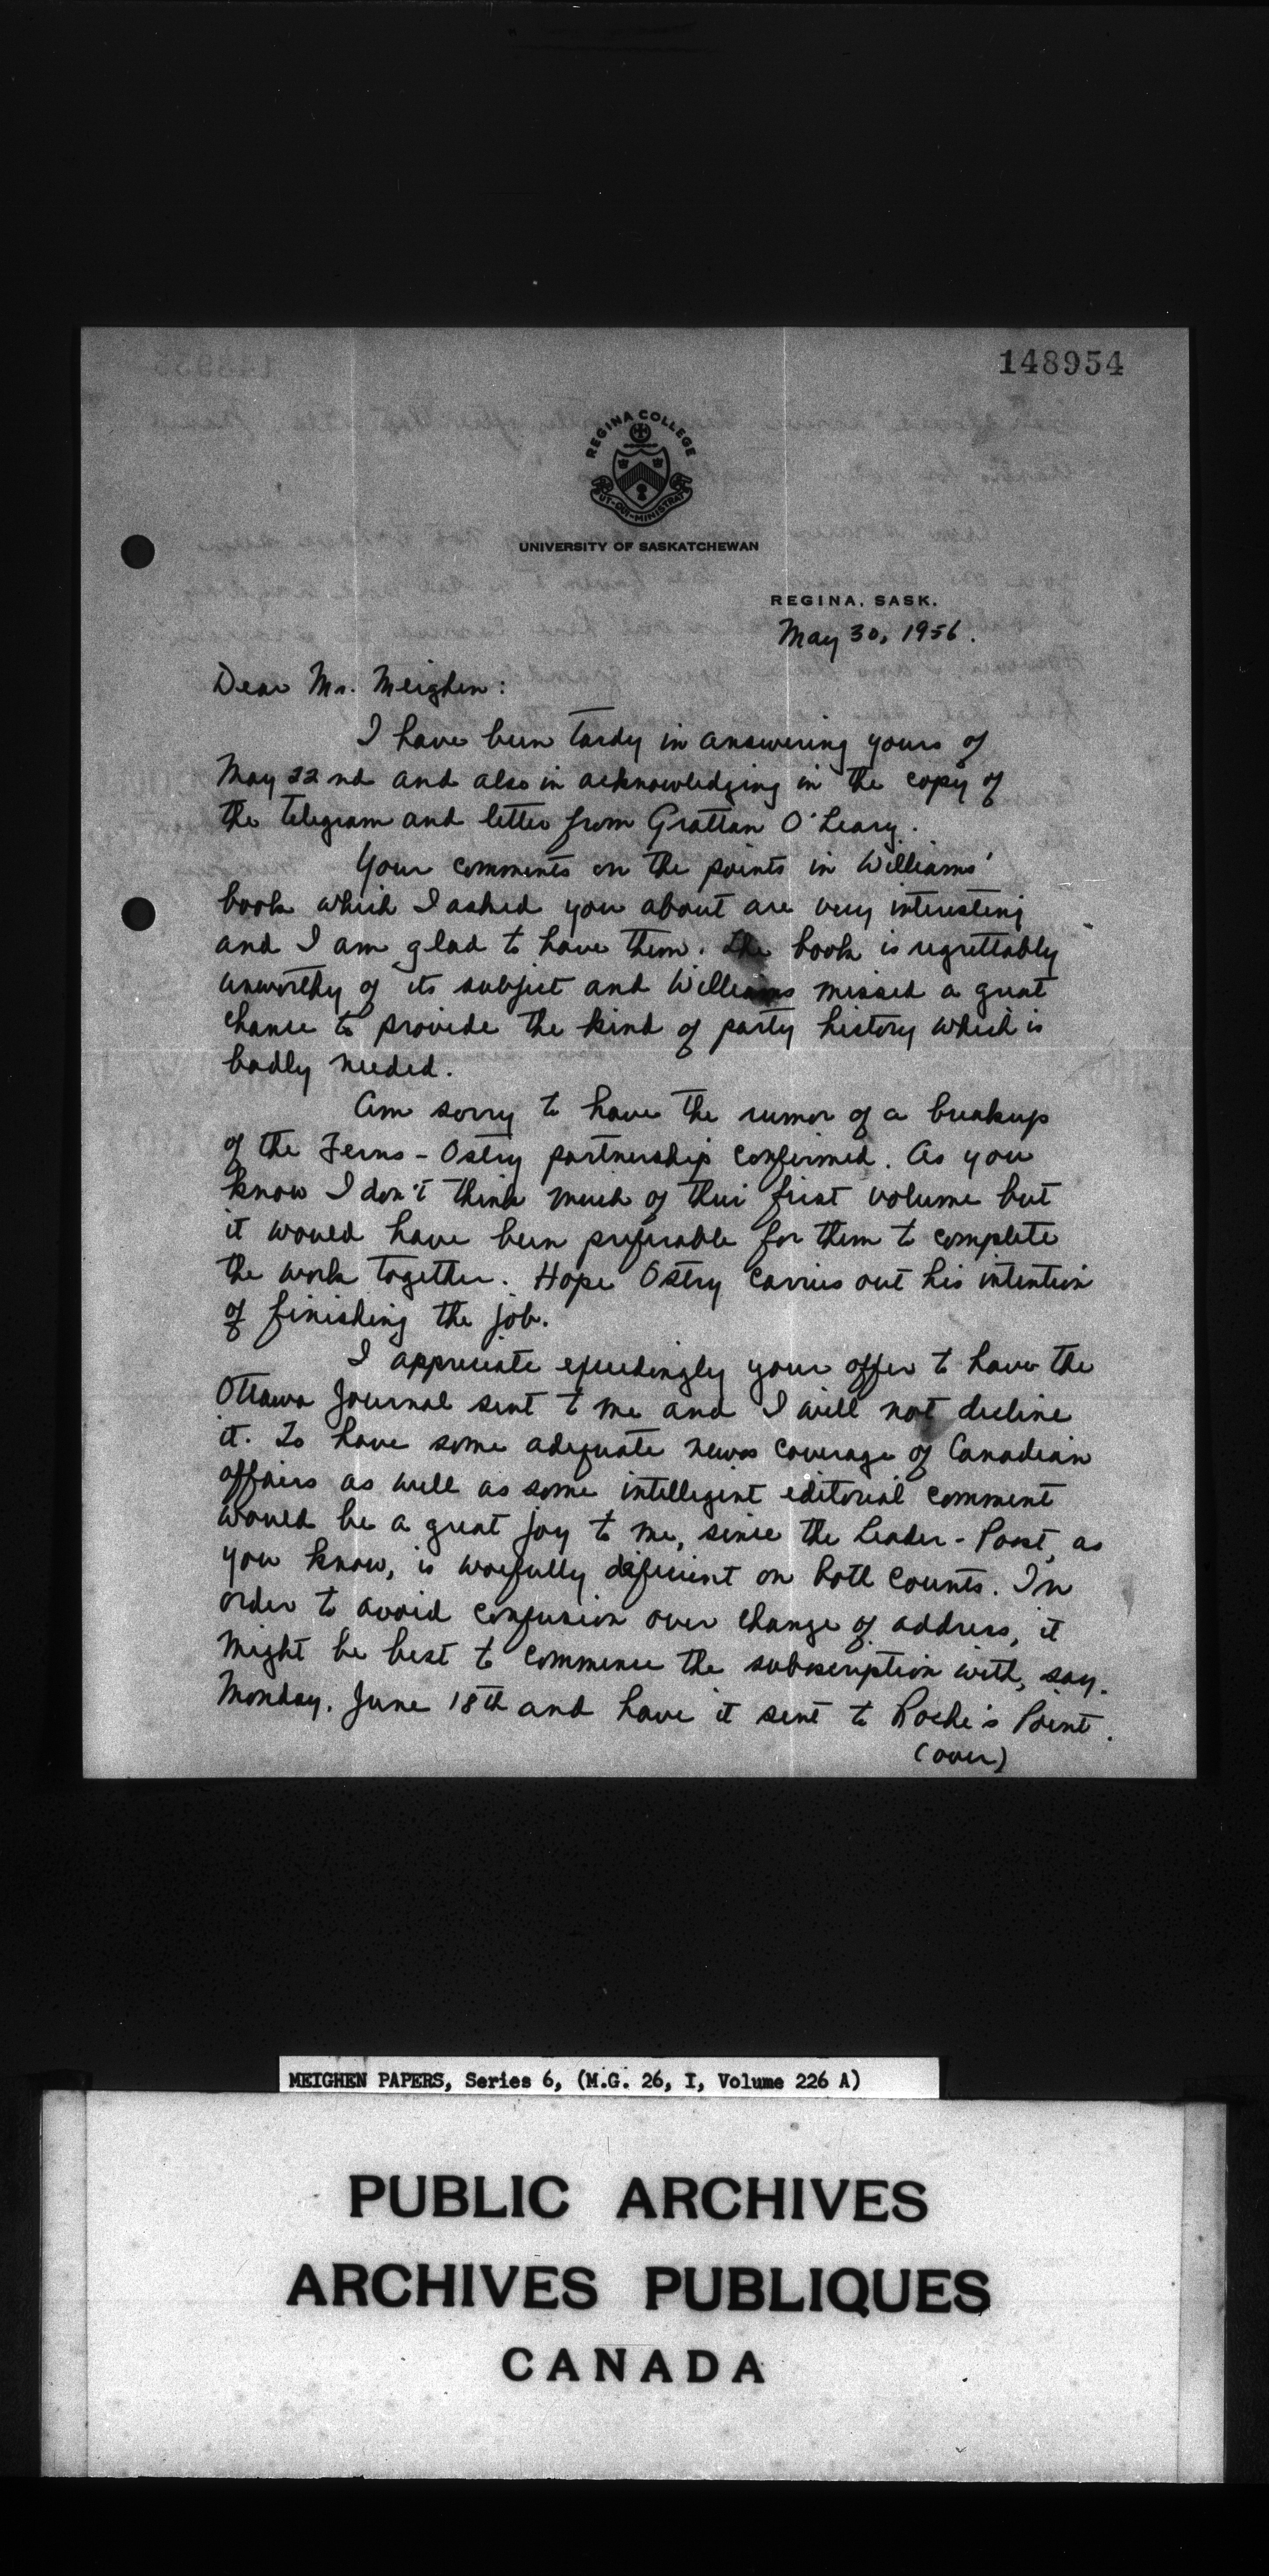 148954
REGINA COLLEGE
UT·QUI·MINISTRAT
UNIVERSITY OF SASKATCHEWAN
REGINA, SASK.
May 30, 1956.
Dear Mr. Meighen:
I have been tardy in answering yours of
May 22nd and also in acknowledging in the copy of
the telegram and letter from Grattan O'Leary.
Your comments on the points in Williams'
book which I asked you about are very interesting
and I am glad to have them. The book is regrettably
unworthy of its subject and Williams missed a great
chance to provide the kind of party history which is
badly needed.
Am sorry to have the rumor of a breakup
of the Ferns-Ostry partnership confirmed. As you
know I don't think much of their first volume but
it would have been preferable for them to complete
the work together. Hope Ostry carries out his intention
of finishing the job.
I appreciate exceedingly your offer to have the
Ottawa Journal sent to me and I will not decline
it. To have some adequate news coverage of Canadian
affairs as well as some intelligent editorial comment
would be a great joy to me, since the Leader-Post, as
you know, is woefully deficient on both counts. In
order to avoid confusion over change of address, it
might be best to commence the subscription with, say,
Monday, June 18th and have it sent to Roche's Point.
(over)
MEIGHEN PAPERS, Series 6, (M.G. 26, I, Volume 226 A)
PUBLIC ARCHIVES
ARCHIVES PUBLIQUES
CANADA